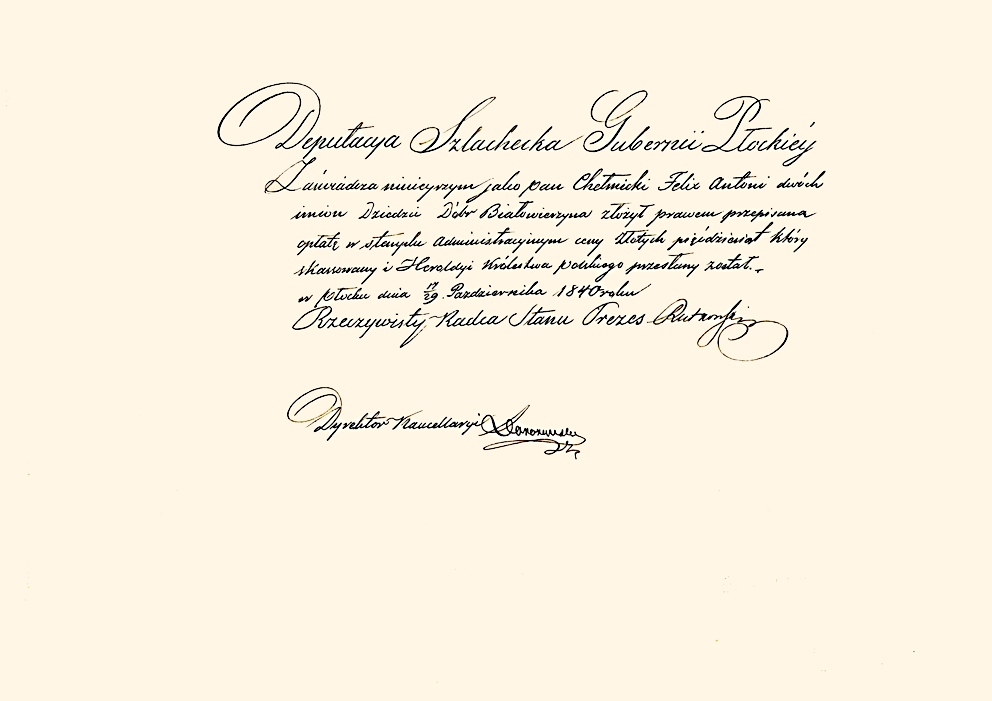 Deputacya Szlachecka Gubernii Płockiéy
Zaświadcza niniejszym jako pan Chełmicki Felix Antoni dwóch
imion Dziedzic Dóbr Białowierzyna złożył prawem przepisaną
opłatę w stemplu Administracyjnym ceny Złotych pięćdziesiąt który
skassowany i Heroldyi Królestwa polskiego przesłany został.
w Płocku dnia 17/29 Pazdziernika 1840 roku
Rzeczywisty Radca Stanu Prezes Rutkowski
Dyrektor Kancellaryi